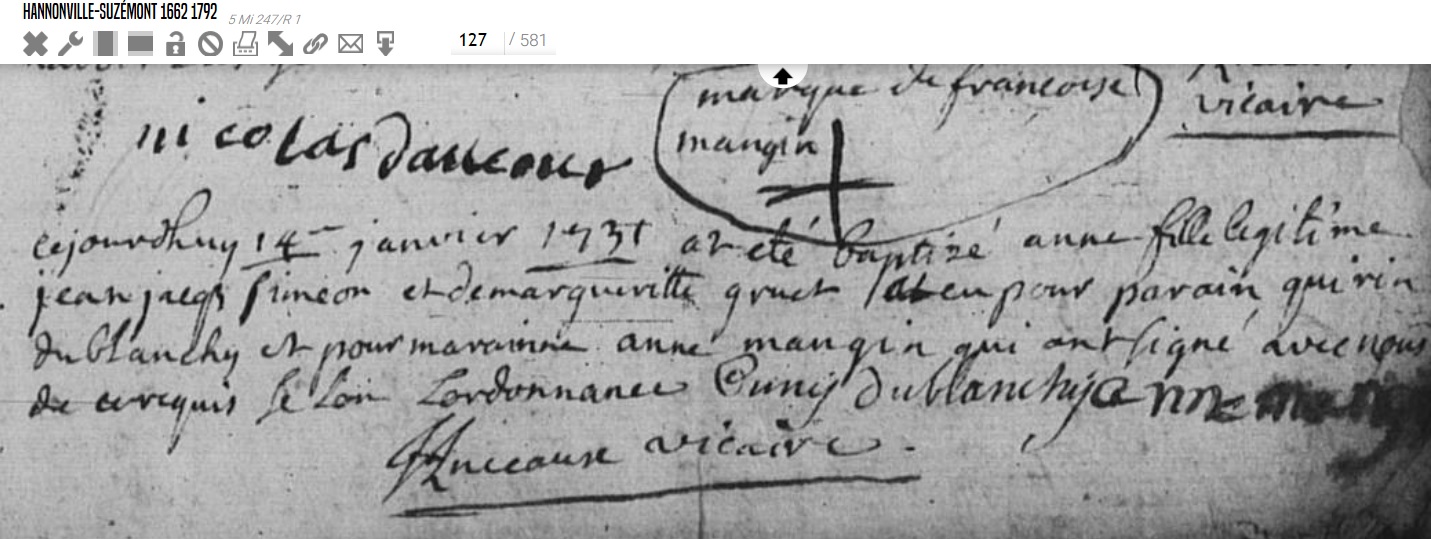 HANNONVILLE-SUZÉMONT 1662 1792 5 Mi 247/R 1
127 / 581
marque de francoise
vicaire
nicolas dancour
mangin
cejourdhuy 14 janvier 1731 at eté baptizé anne fille legitime
jean jacqs simeon et demargueritte gruet at eu pour parain quirin
dublanchy et pour marainne anne mangin qui ont signé avec nous
de ce requis selon Lordonnance dublanchy anne mang
vicaire